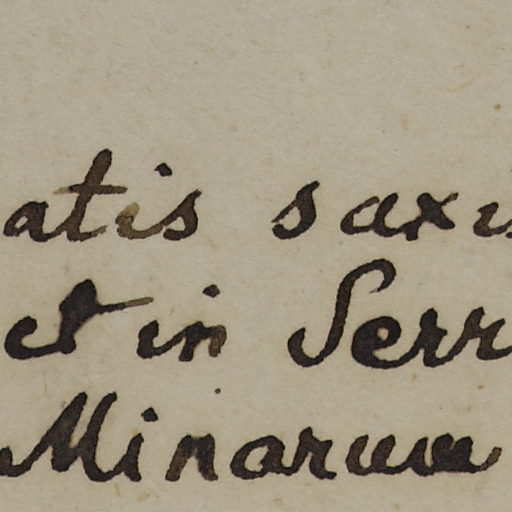 atis saxis
et in Serr
Minarum